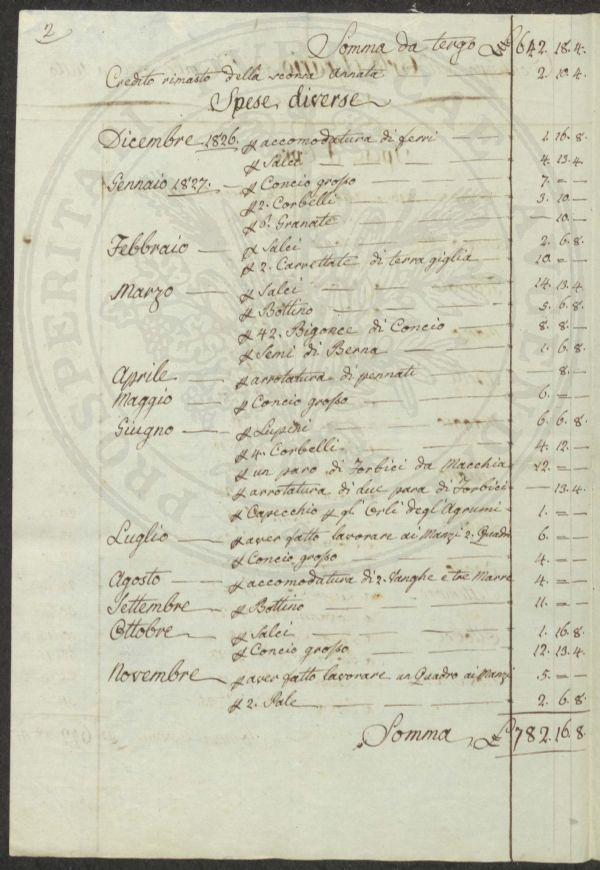 2
Somma da tergo £ 642. 18. 4.
Credito rimasto della scorsa annata 2. 10. 4.
Spese diverse
Dicembre 1826. p accomodatura di ferri — 1. 16. 8.
p Salci — 4. 13. 4.
Gennaio 1827. — p Concio grosso — 7. = —
p 2. Corbelli 3. 10. —
p 3. Granate — 10. —
Febbraio — p Salci — 2. 6. 8.
p 2. Carrettate di terra giglia 10. = —
Marzo — p Salci — 14. 13. 4.
p Bottino — 5. 6. 8.
p 42. Bigonce di Concio — 8. 8. —
p Semi di Berna — 1. 6. 8.
Aprile — p arrotatura di pennati — 8. —
Maggio — p Concio grosso — 6. = —
Giugno — p Lupini — 6. 6. 8.
p 4. Corbelli — 4. 12. —
p un paro di Forbici da Macchia 12. = —
p arrotatura di due para di Forbici — 13. 4.
p Capecchio p gl' Orli degl'Agrumi 1. = —
Luglio — p aver fatto lavorare ai Manzi 2. Quadri 6. = —
p Concio grosso — 4. = —
Agosto — p accomodatura di 2. Vanghe e tre Marre 4. = —
Settembre — p Bottino — 11. = —
Ottobre — p Salci — 1. 16. 8.
p Concio grosso — 12. 13. 4.
Novembre — p aver fatto lavorare un Quadro ai Manzi 5. = —
p 2. Pale — 2. 6. 8.
Somma, £ 782. 16. 8.